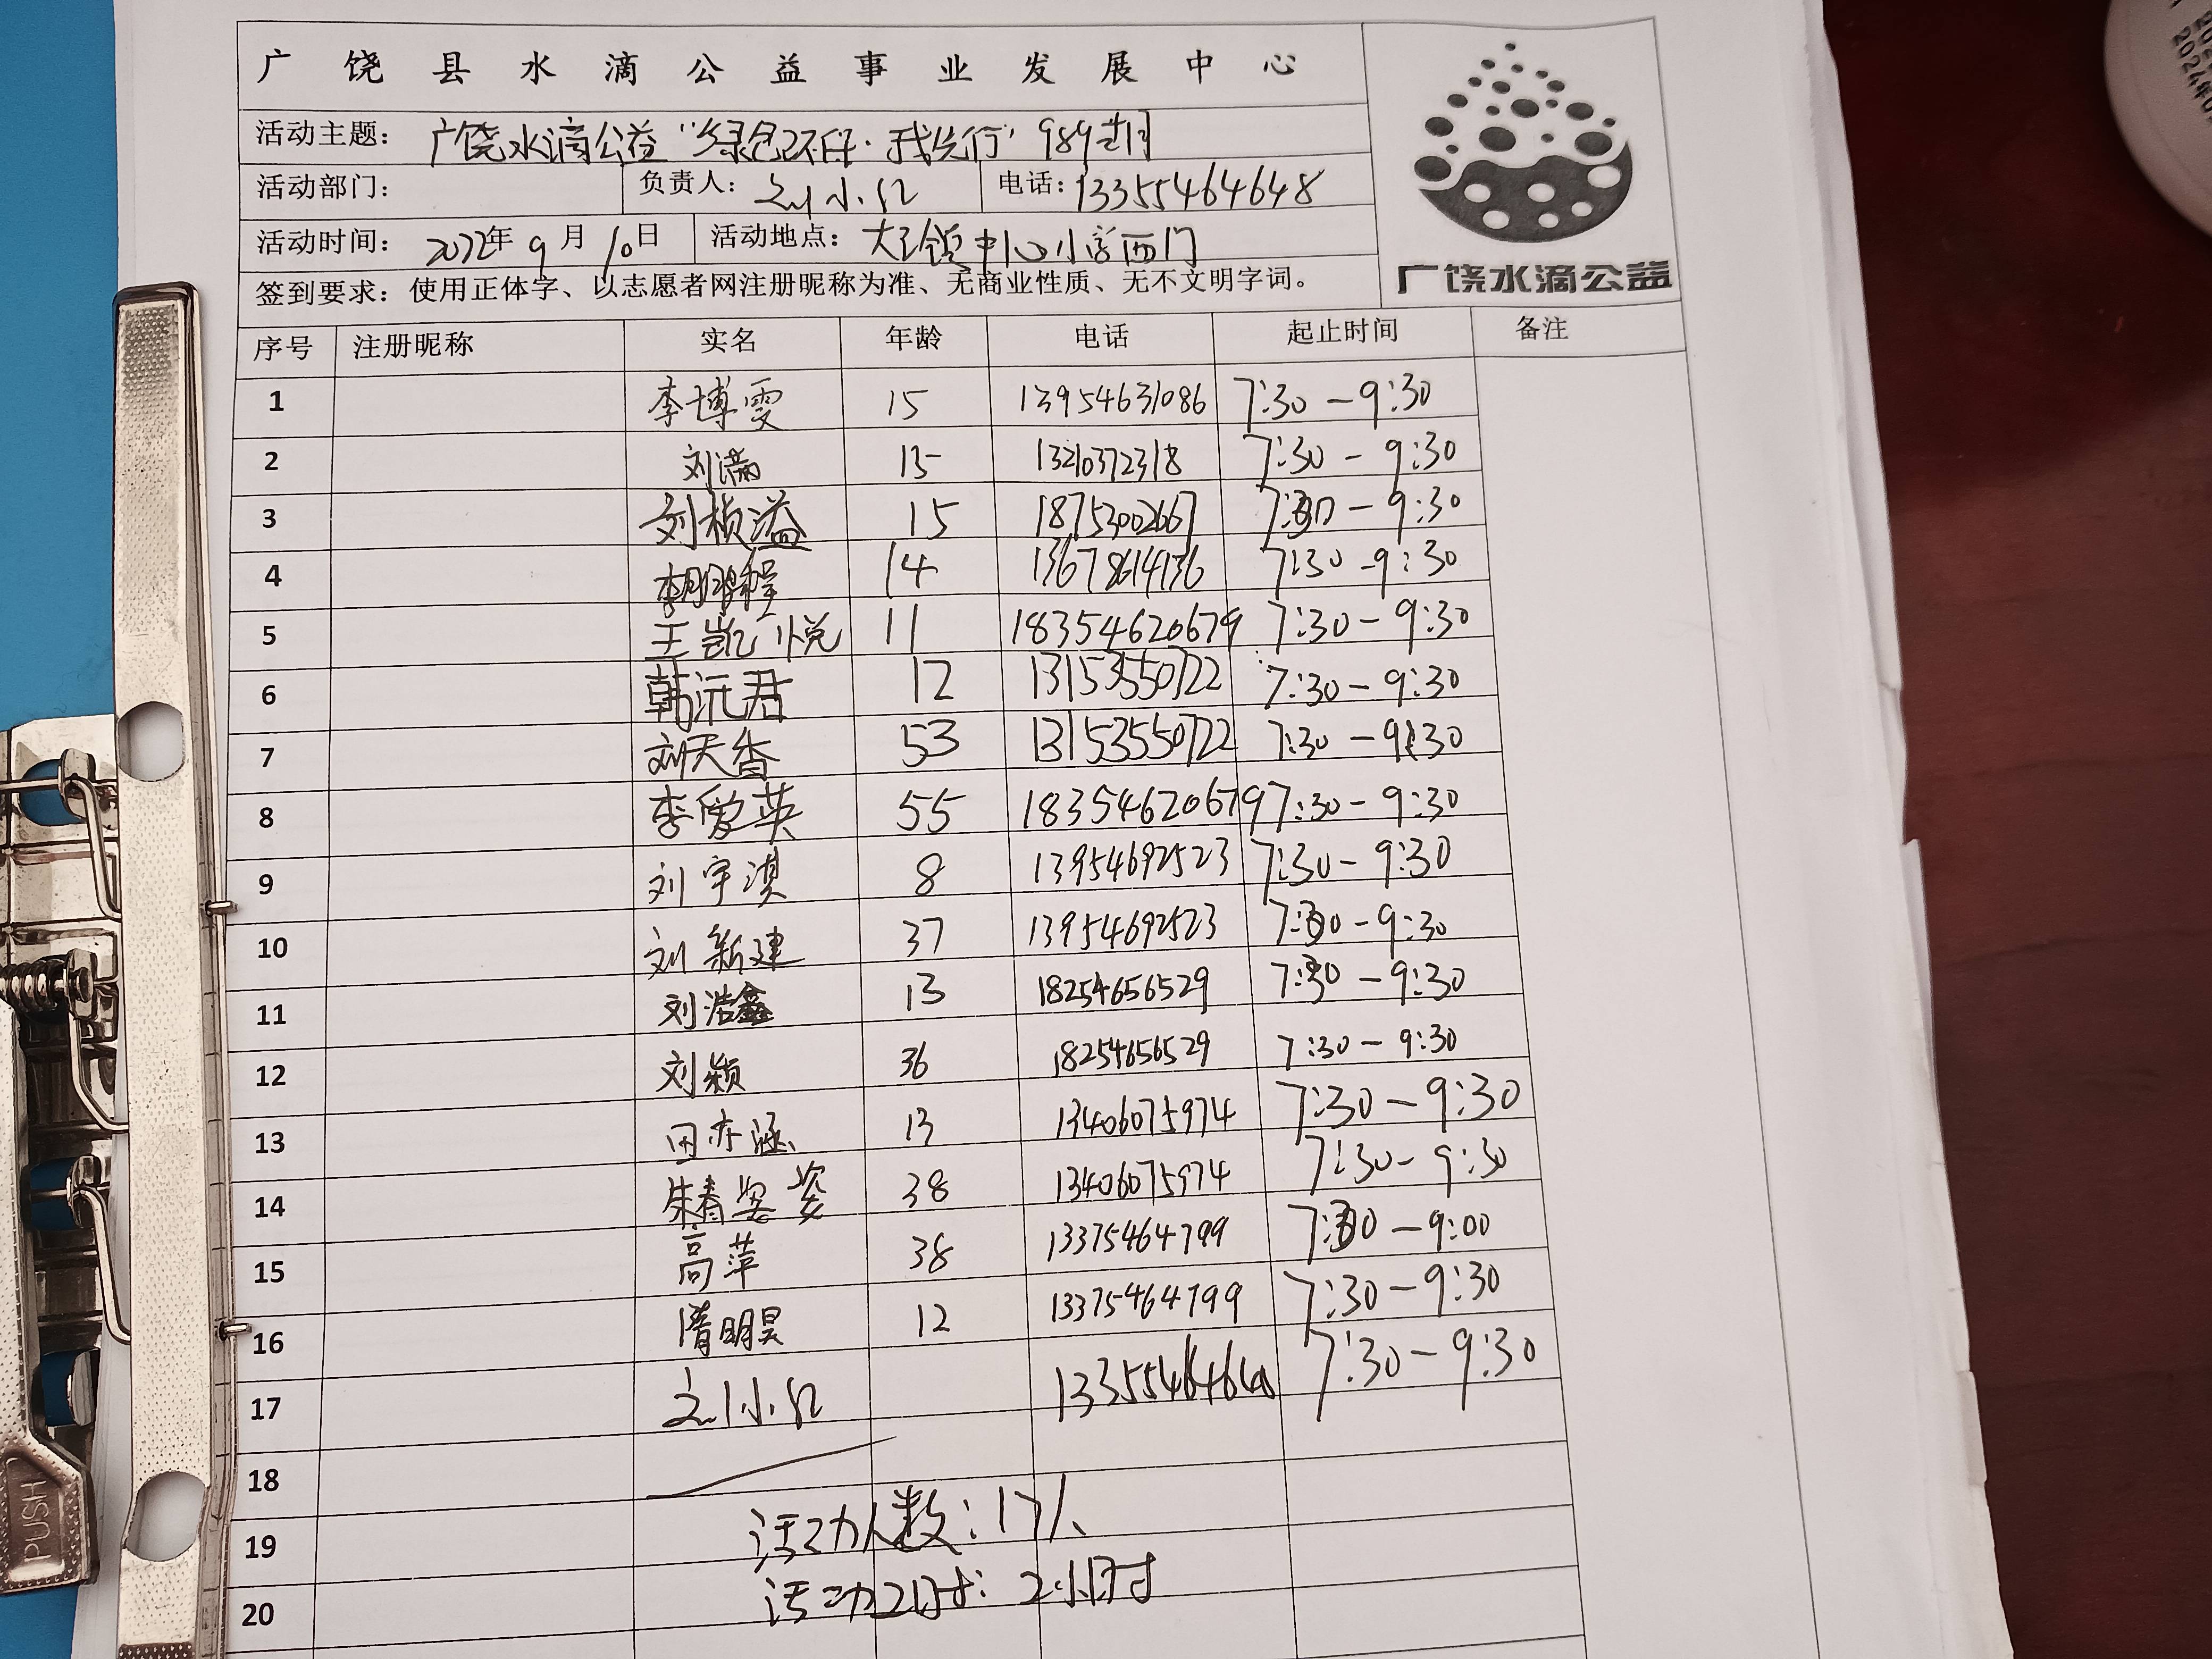 广饶县水滴公益事业发展中心
活动主题： 广饶水滴公益“绿色环保·我先行”989期
活动部门： 负责人： 刘小红 电话： 13355464648
活动时间： 2022年 9月 10日 活动地点： 大王镇中心小学西门
签到要求：使用正体字、以志愿者网注册昵称为准、无商业性质、无不文明字词。
广饶水滴公益
序号 注册昵称 实名 年龄 电话 起止时间 备注
1 李博雯 15 13954631086 7:30－9:30
2 刘满 15 13210372318 7:30－9:30
3 刘桢溢 15 18753002667 7:30－9:30
4 14 13678614136 7:30－9:30
5 王凯悦 11 18354620679 7:30－9:30
6 韩沅君 12 13153550722 7:30－9:30
7 刘天香 53 13153550722 7:30－9:30
8 李爱英 55 18354620679 7:30－9:30
9 刘宇淇 8 13954692523 7:30－9:30
10 刘新建 37 13954692523 7:30－9:30
11 刘浩鑫 13 18254656529 7:30－9:30
12 刘颖 36 18254656529 7:30－9:30
13 田亦涵 13 13406075974 7:30－9:30
14 朱春姿 38 13406075974 7:30－9:30
15 高萍 38 13375464799 7:30－9:00
16 隋明昊 12 13375464799 7:30－9:30
17 刘小红 13355464648 7:30－9:30
18
19 活动人数：17人
20 活动工时：2小时
PUSH